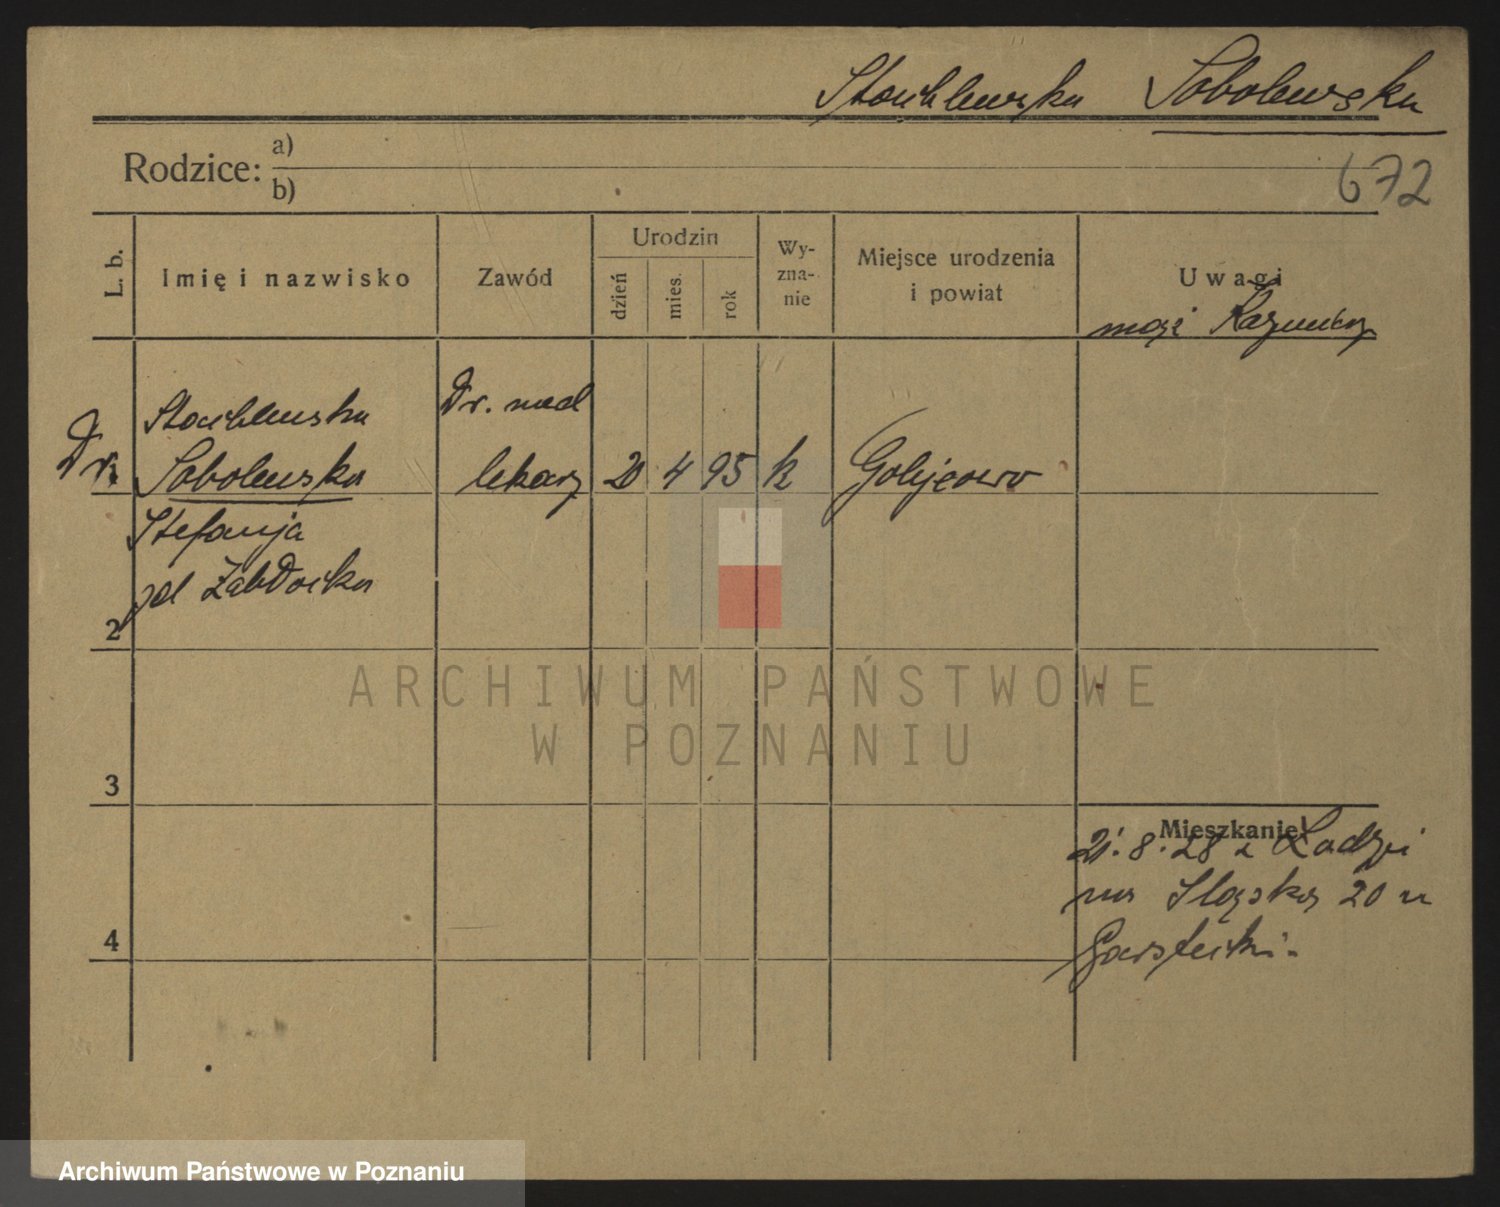 Stachlewska Sobolewska
Rodzice: a)
b)
672
L. b.
Imię i nazwisko
Zawód
Urodzin
dzień
mies.
rok
Wy-
zna-
nie
Miejsce urodzenia
i powiat
Uwagi
mąż Kazimierz
Dr. Stachlewska
Sobolewska
Stefanja
zd
Dr. med
lekarz
20 4 95 k
2
3
4
Mieszkanie
21.8.28 z Łodzi
na Śląską 20 u
ARCHIWUM PAŃSTWOWE
W POZNANIU
Archiwum Państwowe w Poznaniu